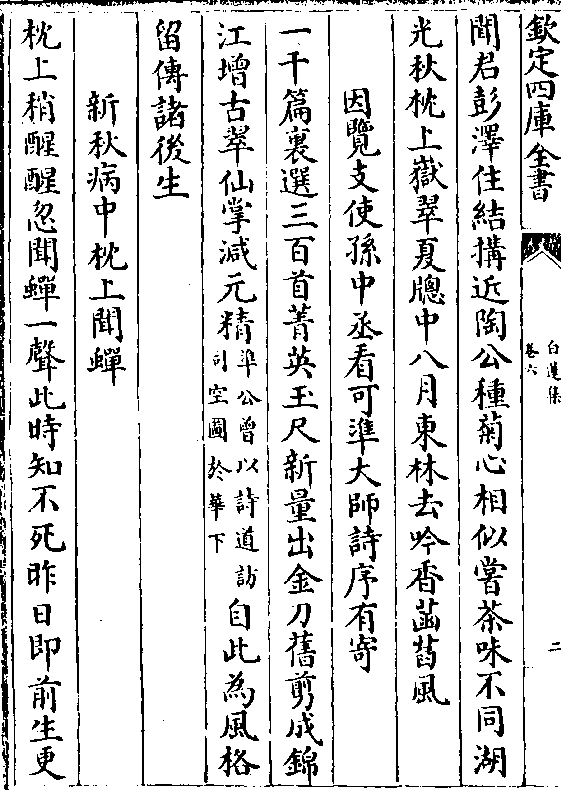 欽定四庫全書
白蓮集
卷六
二
聞君彭澤住結搆近陶公種菊心相似嘗茶味不同湖
光秋枕上嶽翠夏牕中八月東林去吟香菡萏風
因覽支使孫中丞看可準大師詩序有寄
一千篇裏選三百首菁英玉尺新量出金刀舊剪成錦
江增古翠仙掌減元精準公曾以詩道訪司空圖於華下自此為風格
留傳諸後生
新秋病中枕上聞蟬
枕上稍醒醒忽聞蟬一聲此時知不死昨日即前生更